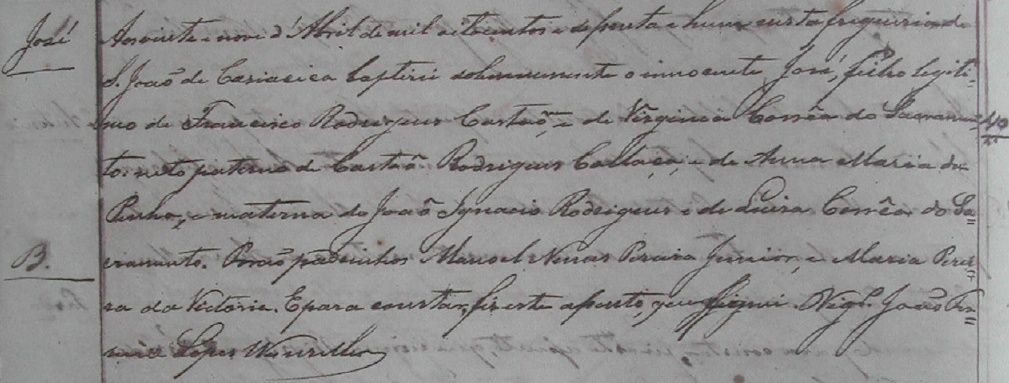 José
Aos vinte e nove d'Abril de mil oitocentos e setenta e hum nesta freguezia de
S. João de Cariacica baptizei solemnemente o innocente José, filho legiti=
mo de Francisco Rodrigues Castaõ, e de Virginia Corrêa do Sacramen=
to: neto paterno de Castaõ Rodrigues Collaça, e de Anna Maria da
Penha, e materno de Joaõ Ignacio Rodrigues e de Luiza Corrêa do Sa=
B.
cramento. Padrinhos Manoel Pereira Junior, e Maria Perei=
ra da Victoria. E para constar, fiz este assento, que assignei. Vigº. Joaõ
Lopes